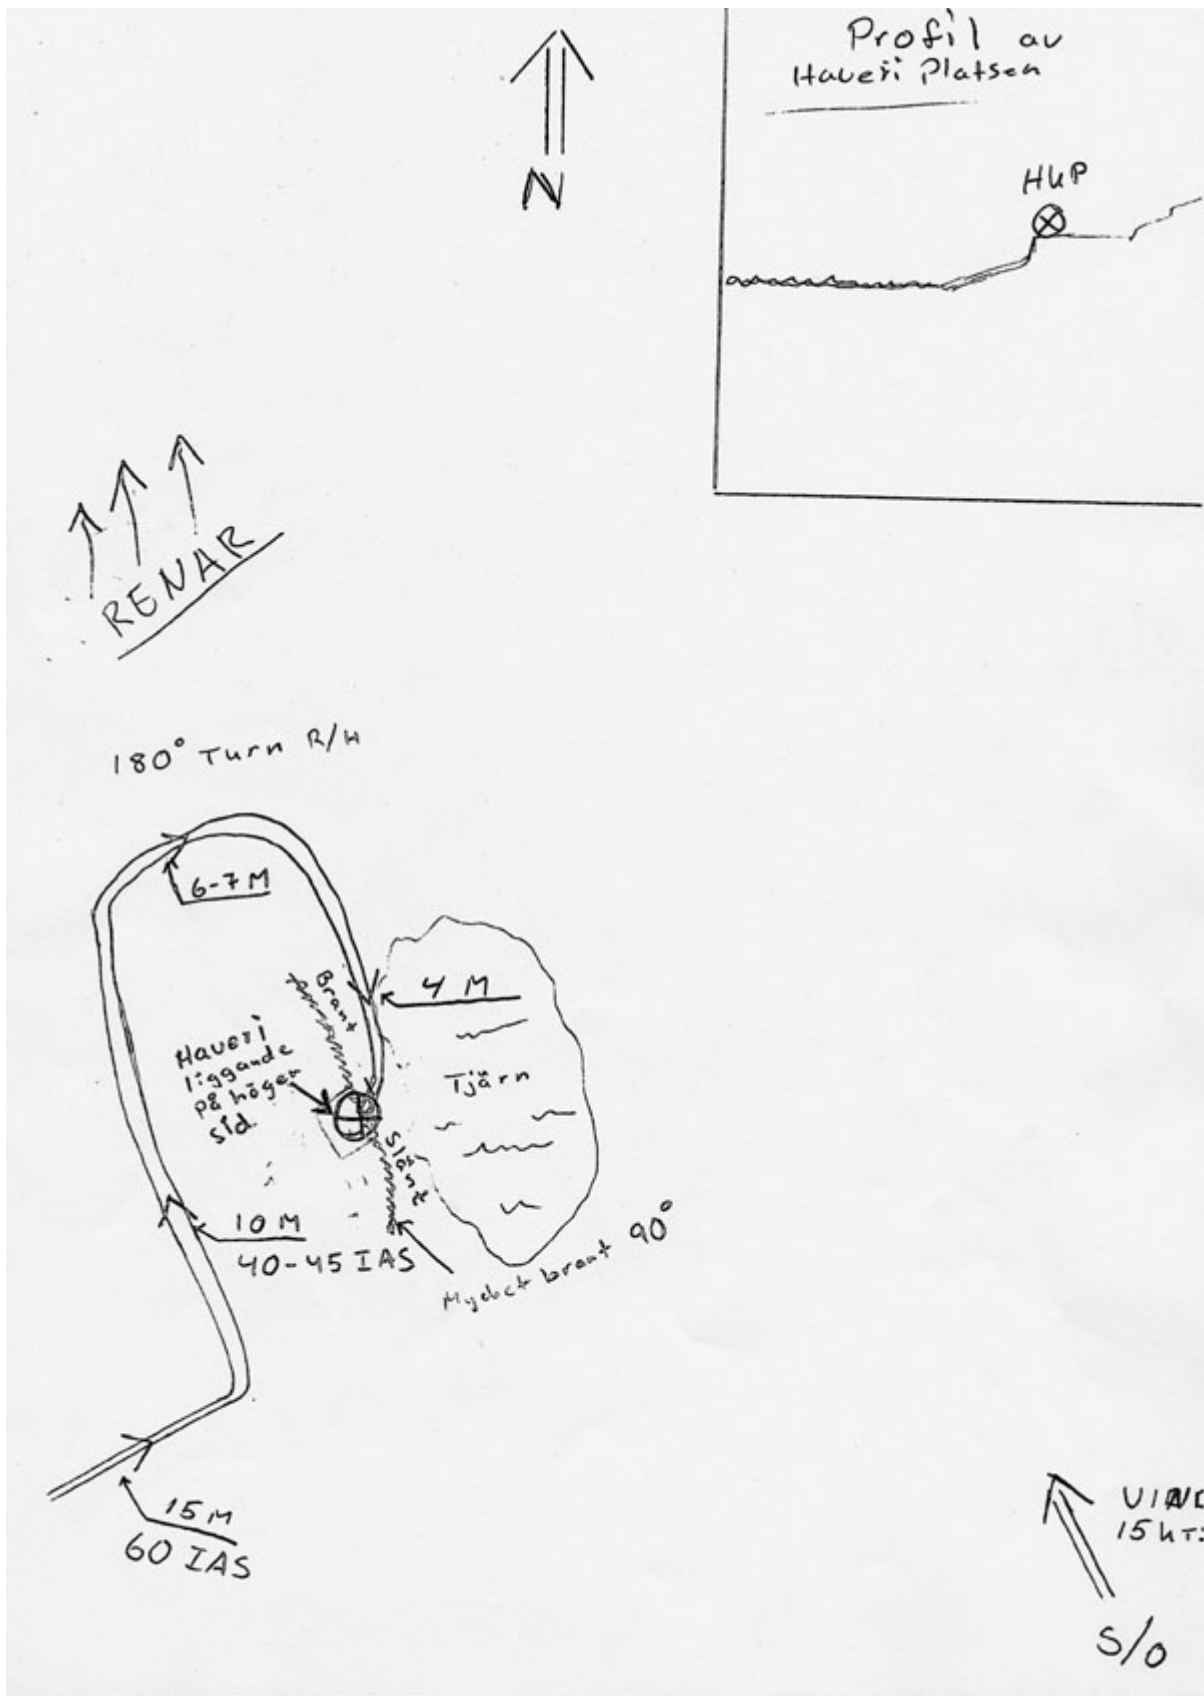 Profil av
Haveri Platsen
HKP
N
RENAR
180° Turn R/H
6-7 M
Brant
4 M
Haveri
liggande
på höger
sid.
Tjärn
Slänt
10 M
40-45 IAS
Mycket brant 90°
15 M
60 IAS
VIND
15 KTS
S/O